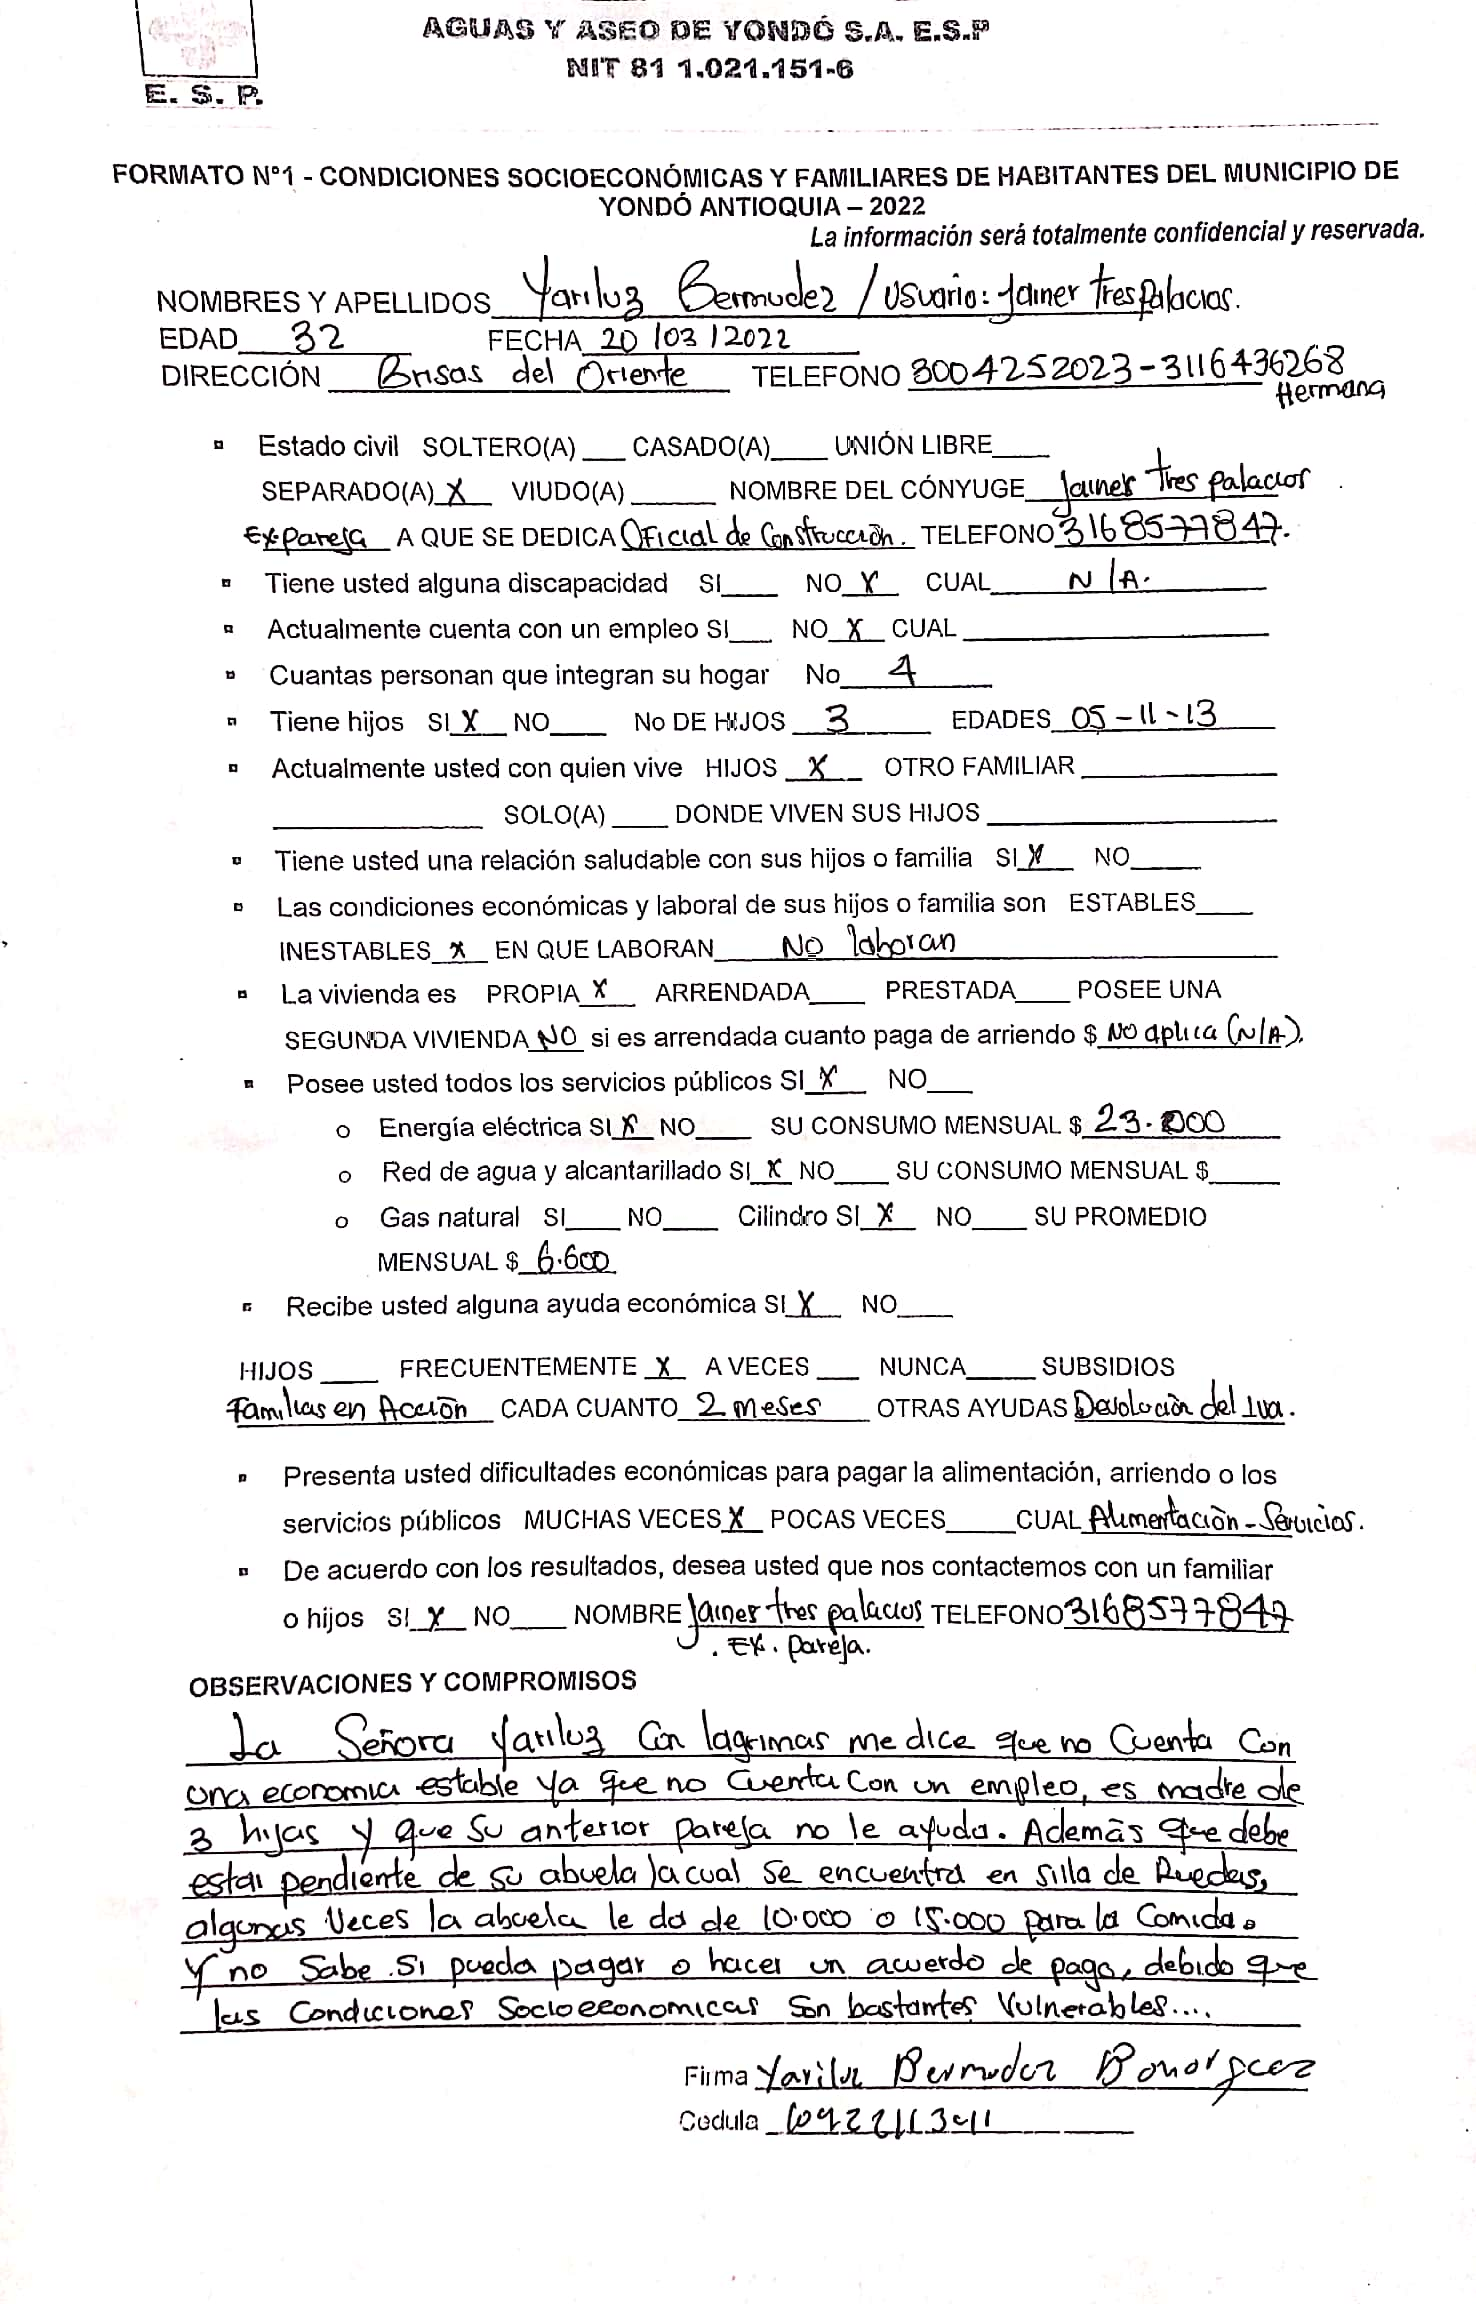 AGUAS Y ASEO DE YONDÓ S.A. E.S.P
NIT 81 1.021.151-6
E. S. P.
FORMATO Nº1 - CONDICIONES SOCIOECONÓMICAS Y FAMILIARES DE HABITANTES DEL MUNICIPIO DE
YONDÓ ANTIOQUIA – 2022
La información será totalmente confidencial y reservada.
NOMBRES Y APELLIDOS Yariluz Bermudez / Usuario: Jainer trespalacios.
EDAD 32 FECHA 20 /03 / 2022
DIRECCIÓN Brisas del Oriente TELEFONO 3004252023-3116436268
Hermana
Estado civil SOLTERO(A) ___ CASADO(A)____ UNIÓN LIBRE____
SEPARADO(A) X VIUDO(A) ______ NOMBRE DEL CÓNYUGE Jainer tres palacios
Ex-pareja A QUE SE DEDICA Oficial de Construcción. TELEFONO 3168577847.
Tiene usted alguna discapacidad SI____ NO X CUAL N/A.
Actualmente cuenta con un empleo SI___ NO X CUAL ____
Cuantas personan que integran su hogar No 4
Tiene hijos SI X NO____ No DE HIJOS 3 EDADES 05-11-13
Actualmente usted con quien vive HIJOS X OTRO FAMILIAR ____
____ SOLO(A) ____ DONDE VIVEN SUS HIJOS ____
Tiene usted una relación saludable con sus hijos o familia SI X NO____
Las condiciones económicas y laboral de sus hijos o familia son ESTABLES____
INESTABLES X EN QUE LABORAN No laboran
La vivienda es PROPIA X ARRENDADA____ PRESTADA____ POSEE UNA
SEGUNDA VIVIENDA NO si es arrendada cuanto paga de arriendo $ No aplica (N/A).
Posee usted todos los servicios públicos SI X NO___
o Energía eléctrica SI X NO____ SU CONSUMO MENSUAL $ 23.000
o Red de agua y alcantarillado SI X NO____ SU CONSUMO MENSUAL $____
o Gas natural SI____ NO____ Cilindro SI X NO____ SU PROMEDIO
MENSUAL $ 6.600
Recibe usted alguna ayuda económica SI X NO____
HIJOS ____ FRECUENTEMENTE X A VECES ___ NUNCA____ SUBSIDIOS
Familias en Acción CADA CUANTO 2 meses OTRAS AYUDAS Devolución del Iva.
Presenta usted dificultades económicas para pagar la alimentación, arriendo o los
servicios públicos MUCHAS VECES X POCAS VECES____ CUAL Alimentación-Servicios.
De acuerdo con los resultados, desea usted que nos contactemos con un familiar
o hijos SI X NO____ NOMBRE Jainer tres palacios TELEFONO 3168577847
. Ex. pareja.
OBSERVACIONES Y COMPROMISOS
La Señora Yariluz Con lagrimas me dice que no Cuenta Con
una economia estable ya que no Cuenta Con un empleo, es madre de
3 hijas y que su anterior pareja no le ayuda. Además que debe
estar pendiente de su abuela la cual se encuentra en silla de Ruedas,
algunas Veces la abuela le da de 10.000 o 15.000 para la Comida.
Y no Sabe si pueda pagar o hacer un acuerdo de pago, debido que
las Condiciones Socioeconomicas Son bastantes Vulnerables....
Firma Yariluz Bermudez
Cedula